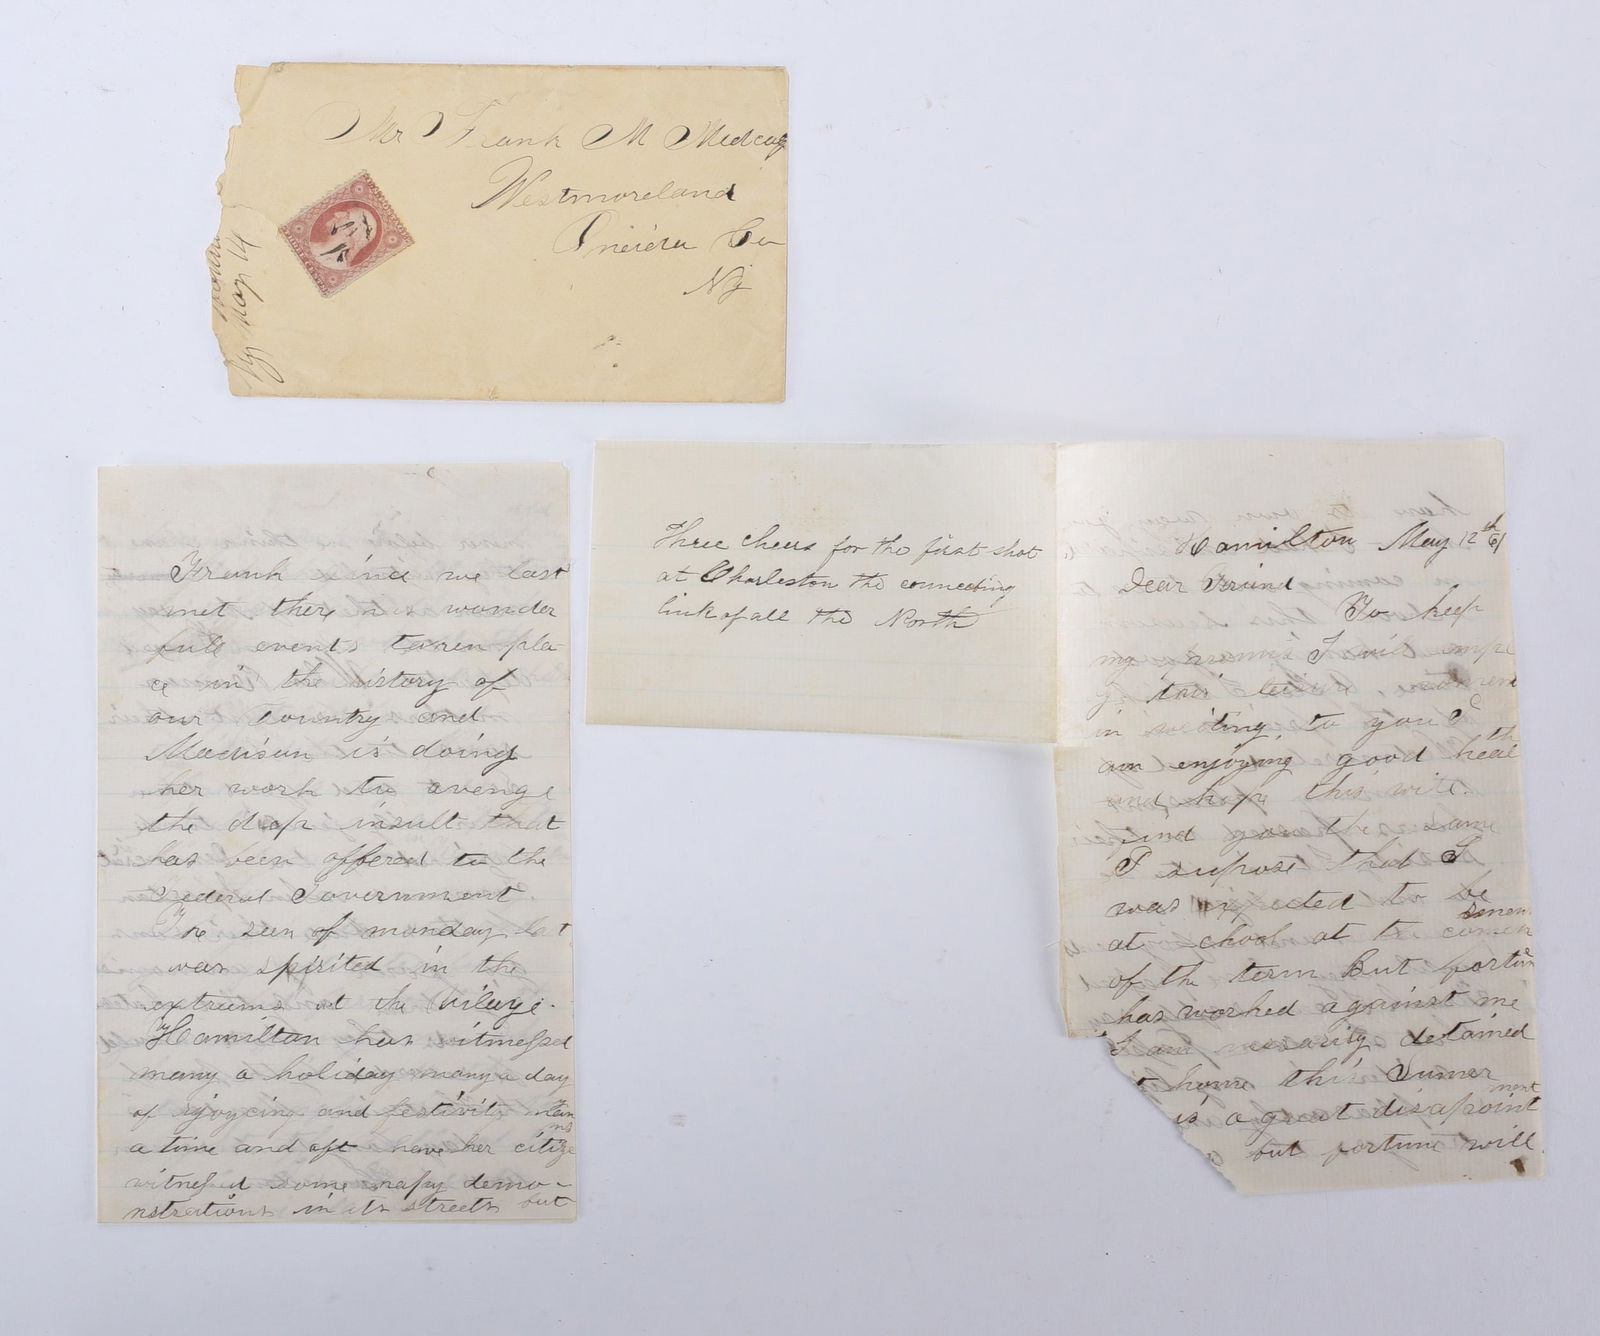 Mr Frank M Medcaf
Westmoreland
Oneida Co
Ny
Ny May 14
Frank since we last
met there is wonder
full events taken pla-
ce in the history of
our Country and
Madison is doing
her work to avenge
the deep insult that
has been offered to the
Federal Government.
The seen of monday last
was spirited in the
extreems at the Vilage.
Hamilton has witnessed
many a holiday many a day
of rejoycing and festivity
a time and oft have her citizens
witnessd some happy demo-
nstrations in its streets but
Three cheers for the first shot
at Charleston the connecting
link of all the North
Hamilton May 12th 61
Dear Friend
To keep
my promis I will
this leisure moment
in writing to you I
am enjoying good health
and hope this will
find you the same
I supose that I
was expected to be
at school at the comensment
of the term But fortune
has worked against me
I am detained
t home this Sumer
is a great disapointment
but fortune will